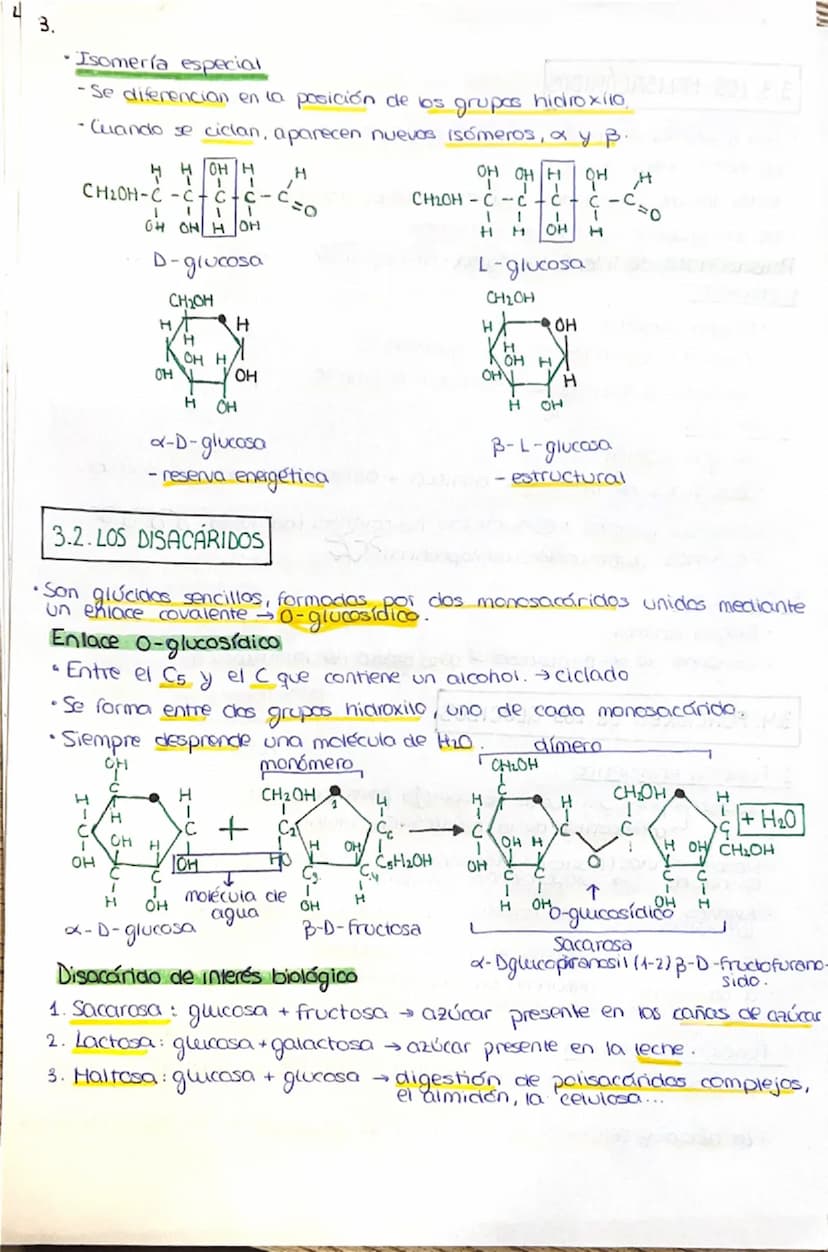 3.
· Isomería especial
- Se diferencian en la posición de los grupos hidroxilo.
- Cuando se ciclan, aparecen nuevos isómeros, α y β.
H H OH H H
CH2OH-C-C-C-C-C=O
OH OH H OH
D-glucosa
OH OH H OH H
CH2OH-C-C-C-C-C=O
H H OH H
L-glucosa
CH2OH
H H
H
OH H
OH OH
H OH
α-D-glucosa
- reserva energética
CH2OH
H OH
H
OH H
OH H
H OH
β-L-glucosa
- estructural
3.2. LOS DISACÁRIDOS
· Son glúcidos sencillos, formados por dos monosacáridos unidos mediante
un enlace covalente → O-glucosídico.
Enlace O-glucosídico
· Entre el C5 y el C que contiene un alcohol. → ciclado
· Se forma entre dos grupos hidroxilo, uno de cada monosacárido.
· Siempre desprende una molécula de H2O.
OH
C
H H
H
C C
OH H
OH OH
C C
H OH
α-D-glucosa
+
molécula de
agua
monómero
CH2OH
H
C2 C5
H OH
HO C5H2OH
C3 C4
OH H
β-D-fructosa
dímero
CH2OH
C
H H
C
OH H
OH
C C
H OH
O
O-glucosídico
CH2OH
H
C C
H OH CH2OH
C C
OH H
+ H2O
Sacarosa
α-Dglucopiranosil (1-2) β-D-fructofurano-
sido.
Disacárido de interés biológico
1. Sacarosa: glucosa + fructosa → azúcar presente en las cañas de azúcar
2. Lactosa: glucosa + galactosa → azúcar presente en la leche.
3. Maltosa: glucosa + glucosa → digestión de polisacáridos complejos,
el almidón, la celulosa...